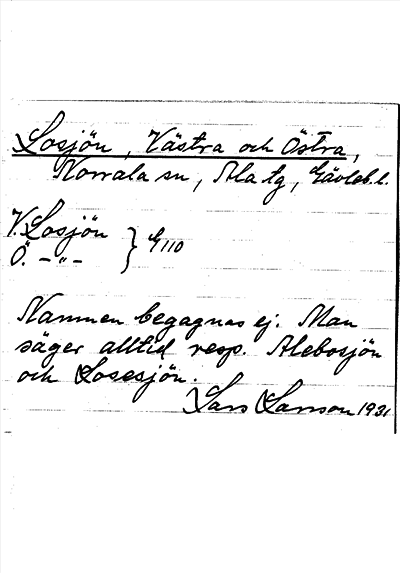 Losjön, Västra och Östra,
Norrala sn, Ala tg, Gävleb. l.
V. Losjön
Ö. -"-
} G 110
Namnen begagnas ej. Man
säger alltid resp. Alebosjön
och Losesjön.
Lars Larsson 1931